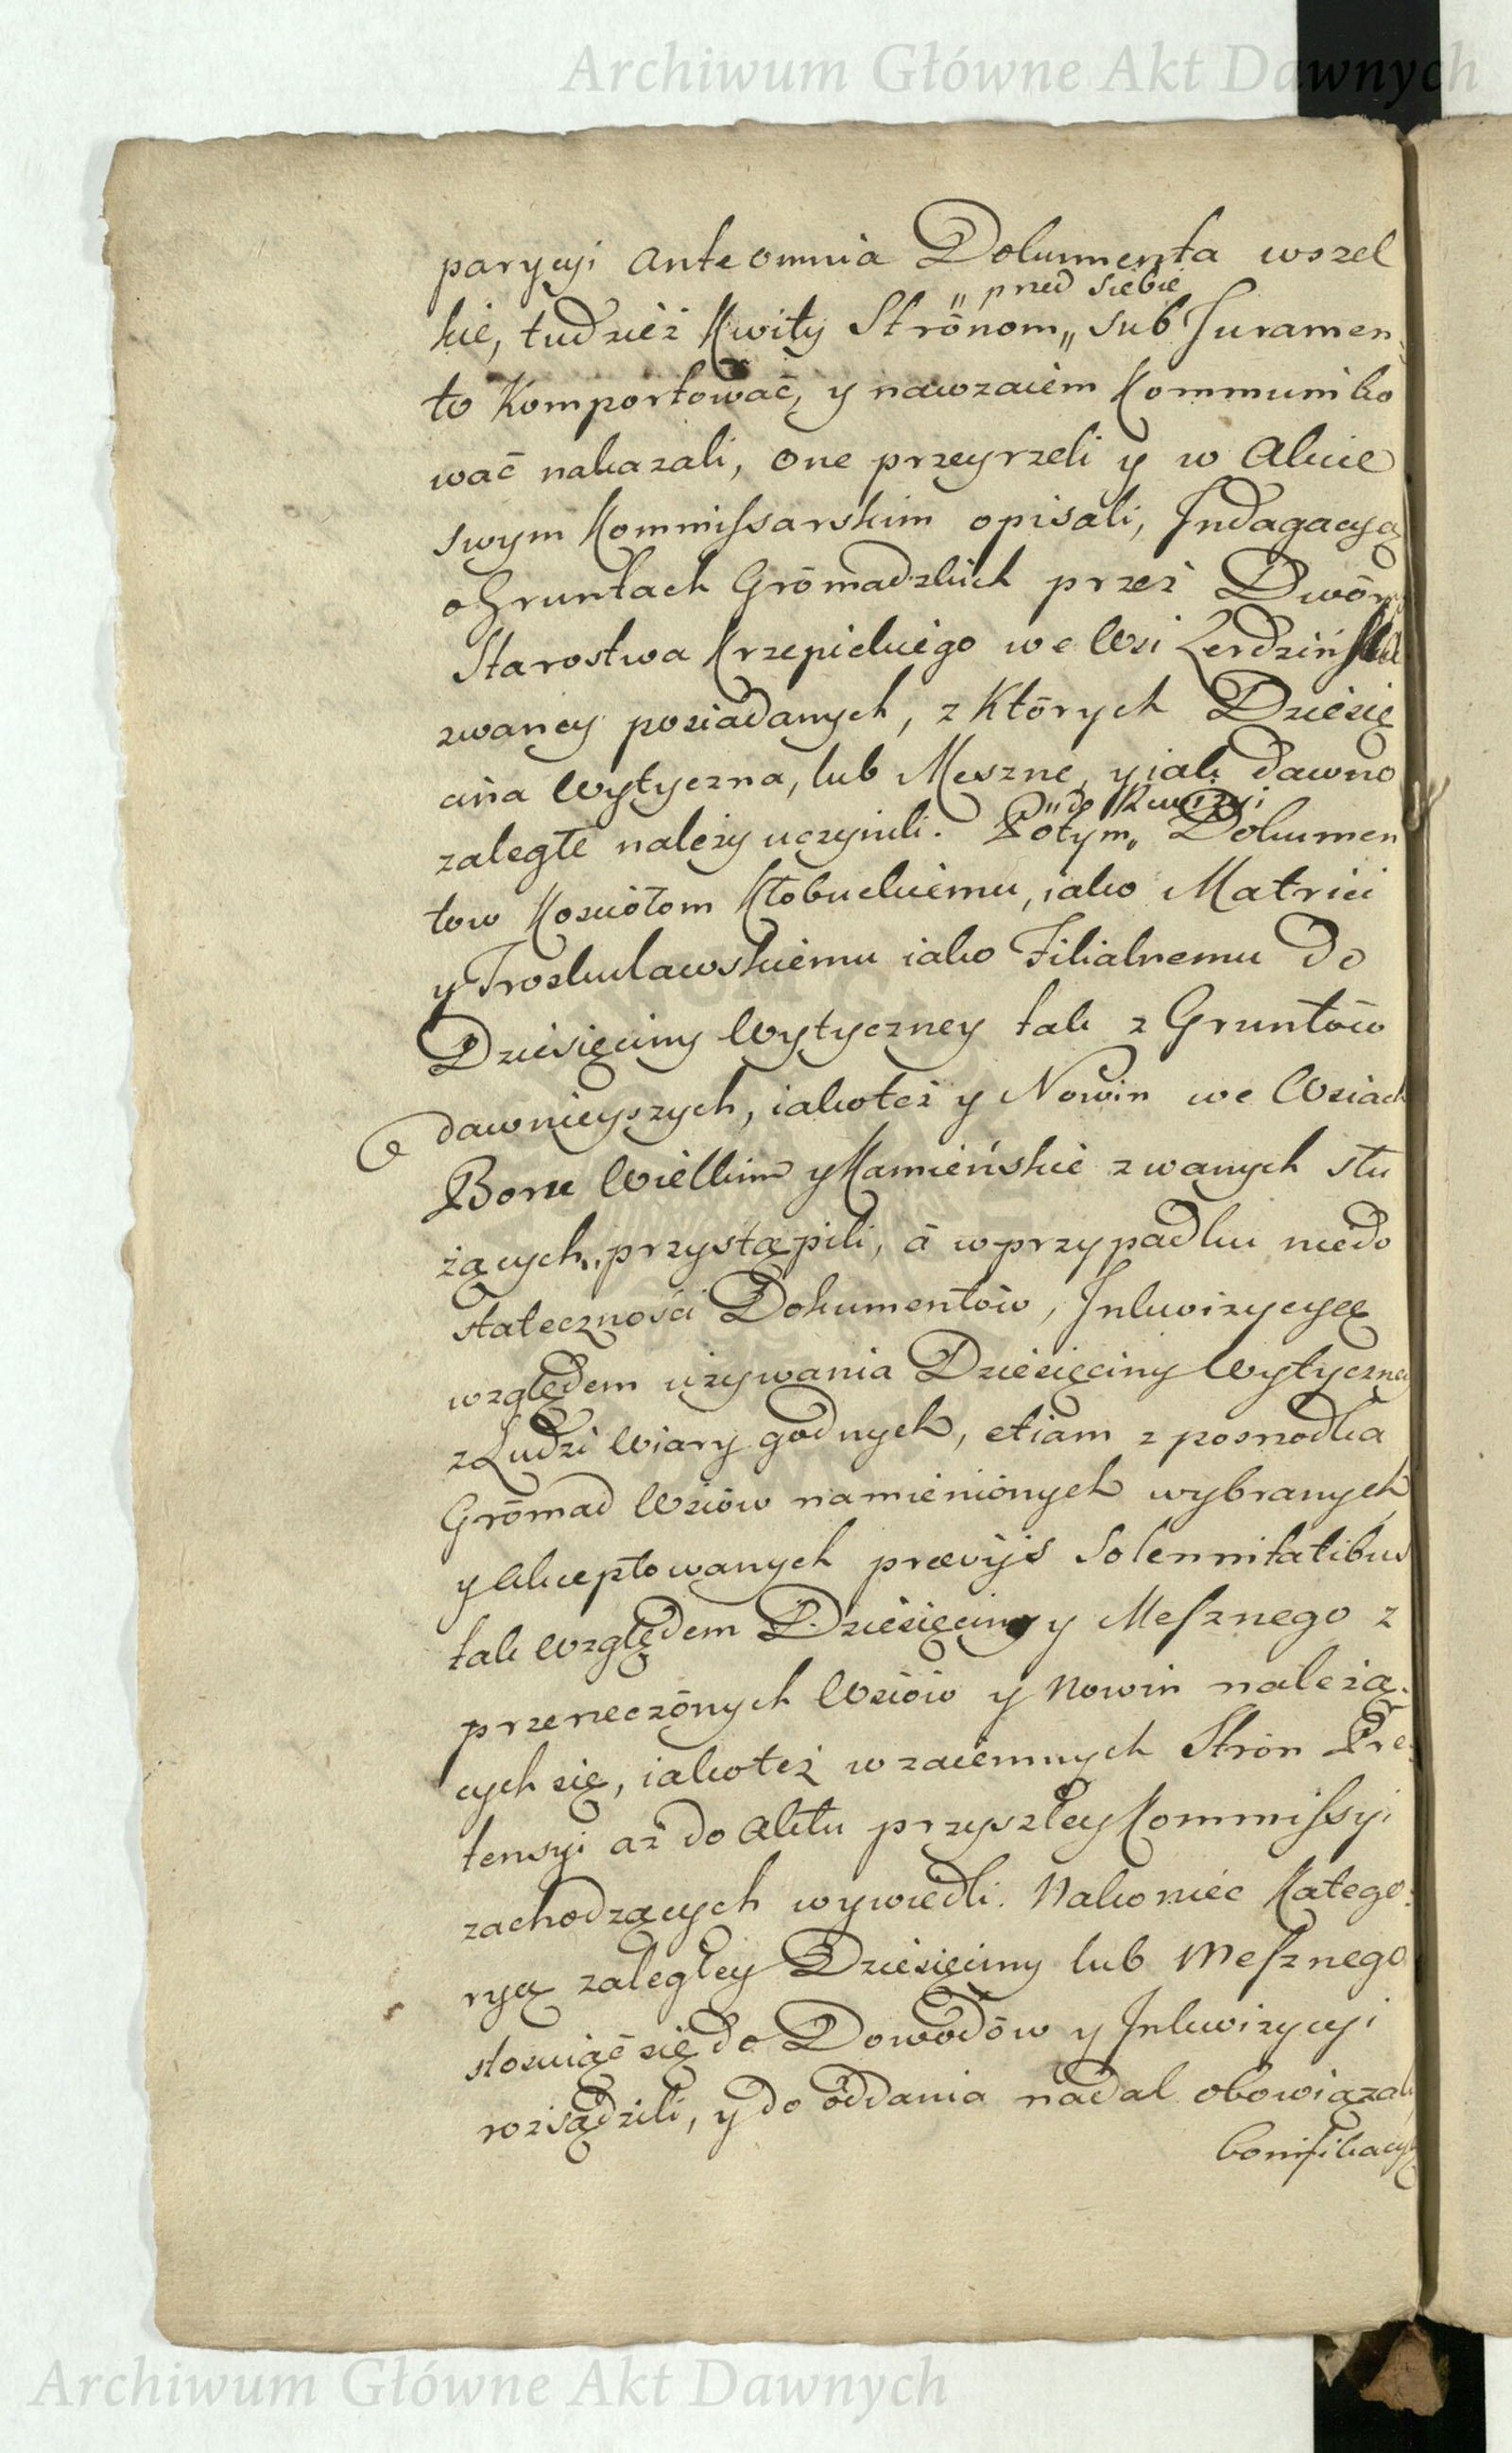 Archiwum Główne Akt Dawnych
parycyi ante omnia Dokumenta wszel
„ przed siebie
kie, tudzież Kwity Strōnom „ sub Juramen
to Komportować, y nawzaiem Kommuniko
wać nakazali, one przeyrzeli y w Akcie
swym Kommissarskim opisali, Indagacyą
o Gruntach Grōmadzkich przez Dwōr
Starostwa Krzepickiego we Wsi
zwaney posiadanych, z Ktōrych Dziesię
cina Wytyczna, lub Meszne, y iak dawno
„ do Rewizyi
zaległe należy uczynili. Potym „ Dokumen
tow Kosciołom Kłobuckiemu, iako Matrici
y Truskulawskiemu iako Filialnemu do
Dziesięciny Wytyczney tak z Gruntōw
dawnieyszych, iakoteż y Nowin we Wsiach
Borze Wielkim y Kamieńskie zwanych słu
żących „ przystąpili, á w przypadku niedo
stateczności Dokumentōw, Inkwizycyą
względem używania Dziesięciny Wytyczney
z Ludzi Wiary godnych, etiam z posrodka
Grōmad Wsiōw namieniōnych wybranych
y Akceptowanych prævijs Solennitatibus
tak Względem Dziesięciny y Mesznego z
przerzeczōnych Wsiōw y Nowin należą
cych się, iakoteż wzaiemnych Strōn Pre
tensyi aż do Aktu przyszłey Kommissyi
zachodzących wywiedli. Nakoniec Katego
ryą zaległey Dziesięciny lub Mesznego
stosuiąc się do Dowodōw y Inkwizycyi
rozsądzili, y do oddania nadal obowiązali
bonifikacyą
Archiwum Główne Akt Dawnych